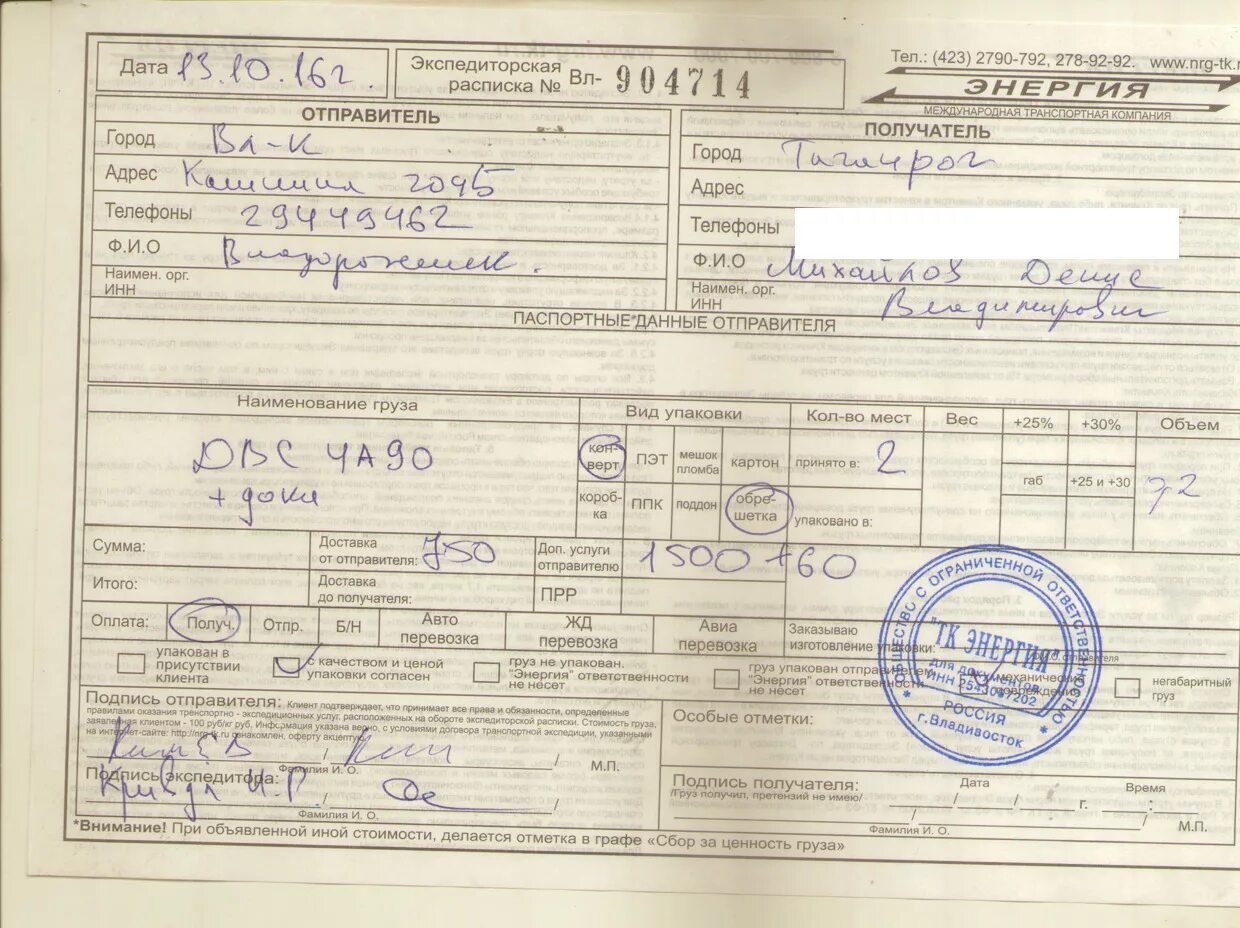 Дата 13.10.16г.
Экспедиторская расписка № Вл- 904714
Тел.: (423) 2790-792, 278-92-92. www.nrg-tk.r
ЭНЕРГИЯ
МЕЖДУНАРОДНАЯ ТРАНСПОРТНАЯ КОМПАНИЯ
ОТПРАВИТЕЛЬ
Город Вл-к
Адрес Калинина
Телефоны
Ф.И.О Владорожник.
Наимен. орг.
ИНН
ПОЛУЧАТЕЛЬ
Город Таганрог
Адрес
Телефоны
Ф.И.О Михайлов Денис
Наимен. орг. Владимирович
ИНН
ПАСПОРТНЫЕ ДАННЫЕ ОТПРАВИТЕЛЯ
Наименование груза
Вид упаковки
Кол-во мест
Вес
+25%
+30%
Объем
ДВС 4А90
+ доки
кон-
верт
ПЭТ
мешок
пломба
картон
принято в: 2
габ
+25 и +30
короб-
ка
ППК
поддон
обре-
шетка
упаковано в:
Сумма:
Доставка
от отправителя: 750
Доп. услуги
отправителю 1500 +60
Итого:
Доставка
до получателя:
ПРР
Оплата:
Получ.
Отпр.
Б/Н
Авто
перевозка
ЖД
перевозка
Авиа
перевозка
Заказываю
изготовление упаковки:
упакован в
присутствии
клиента
с качеством и ценой
упаковки согласен
груз не упакован.
"Энергия" ответственности
не несет
груз упакован отправителем
"Энергия" ответственности
не несет
механические
повреждения
негабаритный
груз
ОБЩЕСТВО С ОГРАНИЧЕННОЙ ОТВЕТСТВЕННОСТЬЮ
"ТК ЭНЕРГИЯ"
для документов
ИНН 2543047202
РОССИЯ
г.Владивосток
Подпись отправителя: Клиент подтверждает, что принимает все права и обязанности, определенные
правилами оказания транспортно - экспедиционных услуг, расположенных на обороте экспедиторской расписки. Стоимость груза,
заявленная клиентом - 100 руб/кг руб. Информация указана верно, с условиями договора транспортной экспедиции, указанными
на интернет-сайте: http://nrg-tk.ru ознакомлен, оферту акцептую.
Фамилия И. О.
М.П.
Подпись экспедитора:
Кривда И.Р.
Фамилия И. О.
Особые отметки:
Подпись получателя:
/Груз получил, претензий не имею/
Дата
г.
Время
:
Фамилия И. О.
М.П.
*Внимание! При объявленной иной стоимости, делается отметка в графе «Сбор за ценность груза»